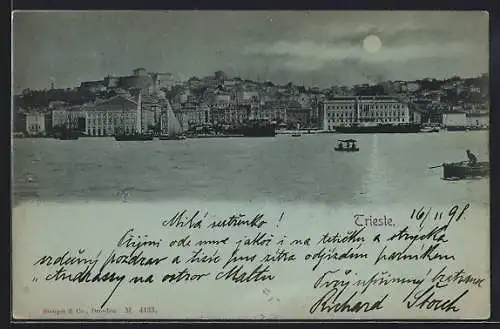 Trieste.
16/11 98.
Milá sestřenko!
Přijmi ode mne jakož i na tetičku a strýčka
srdečný pozdrav a zítra odjedu parníkem
„Andrassy na ostrov Maltu
Tvůj upřímný bratranec
Richard Stoch
Stengel & Co., Dresden M. 4133.